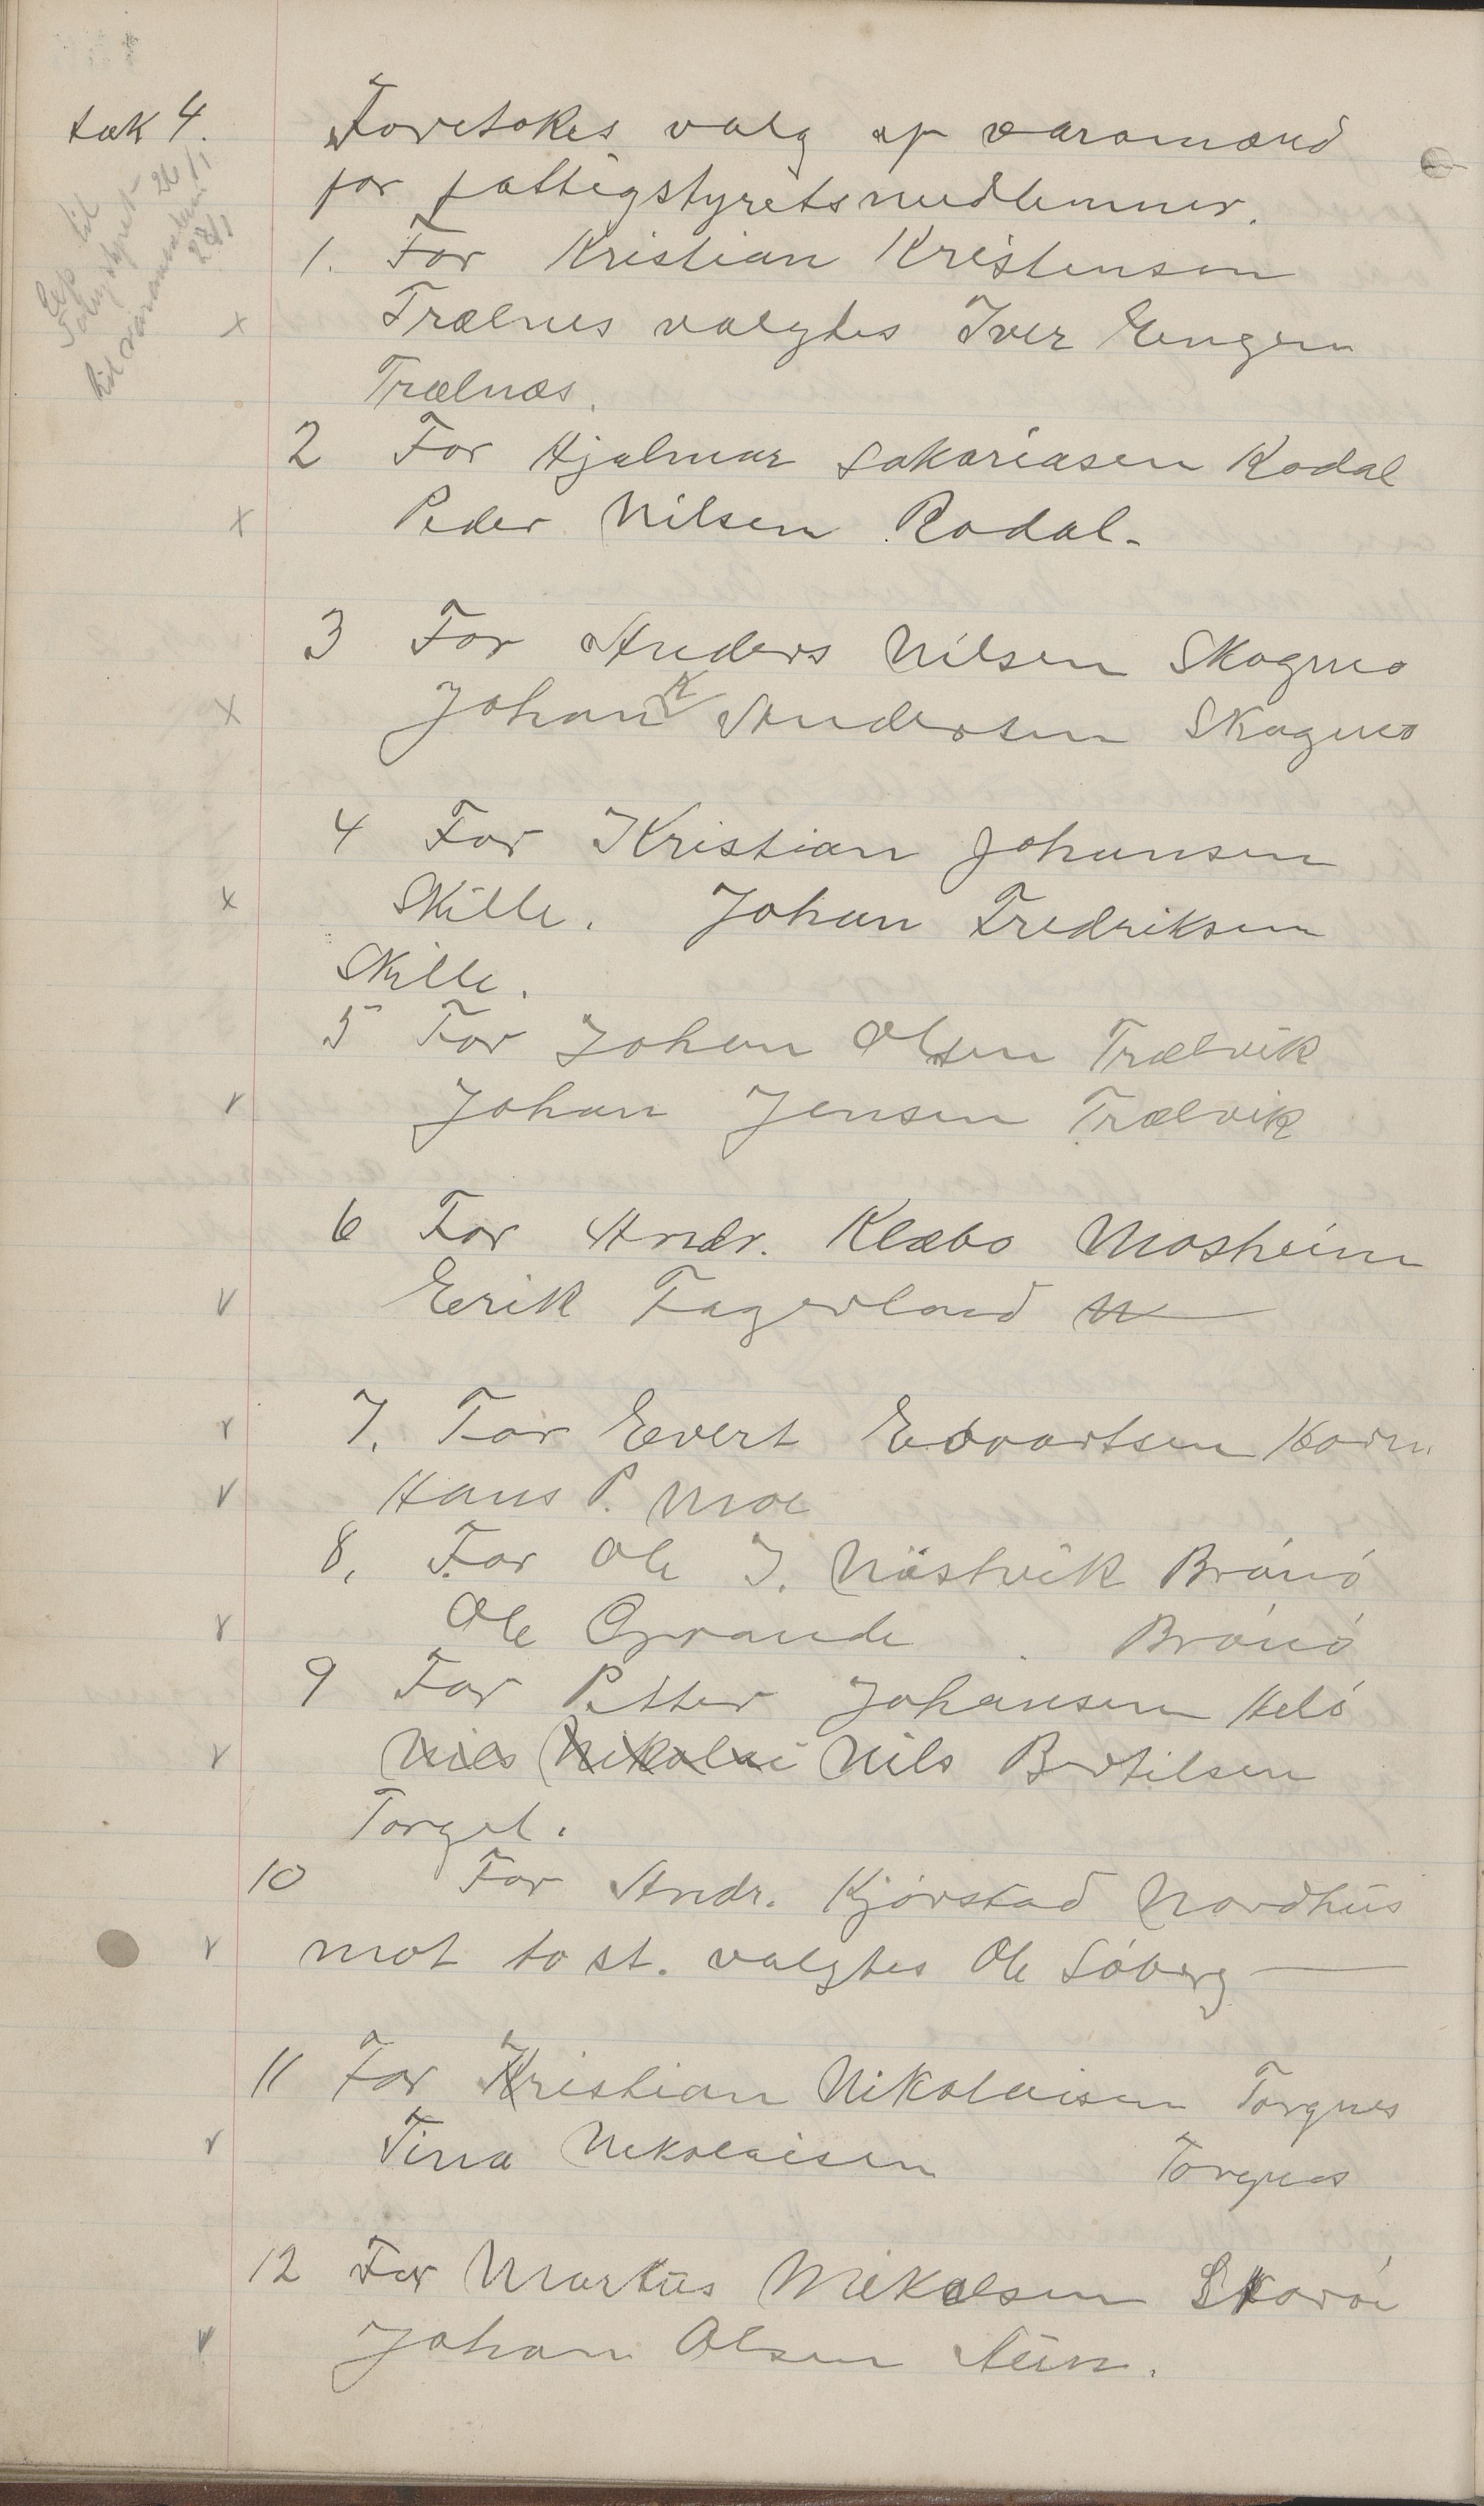 sak 4.
Foretokes valg af varamænd
for fattigstyretsmedlemmer.
Eksp til
Fattigstyret 26/1
til varamændene
27/1
1. For Kristian Kristensen
x Trælnes valgtes Iver Engen
Trælnæs.
2 For Hjalmar Sakariasen Rodal
x Peder Nilsen Rodal.
3 For Anders Nilsen Skogmo
x Johan K Andersen Skogmo
4 For Kristian Johansen
x Skille. Johan Fredriksen
Skille.
5 For Johan Olsen Trælvik
v Johan Jensen Trælvik
6 For Andr. Klæbo Mosheim
v Erik Fagerland
v 7. For Evert Edvartsen
v Hans P. Moe
8. For Ole J. Nästvik Brónó
v Ole Grande Brónó
9 For Petter Johansen Heló
v Nils Nikolai Nils Bertilsen
Torget.
10 For Andr. Kjörstad Nordhus
v mot to st. valgtes Ole Söberg —
11 For Kristian Nikolaisen Torgnes
v Tina Nikolaisen Torgnes
12 For Martius Mikalsen
v Johan Olsen Aün.